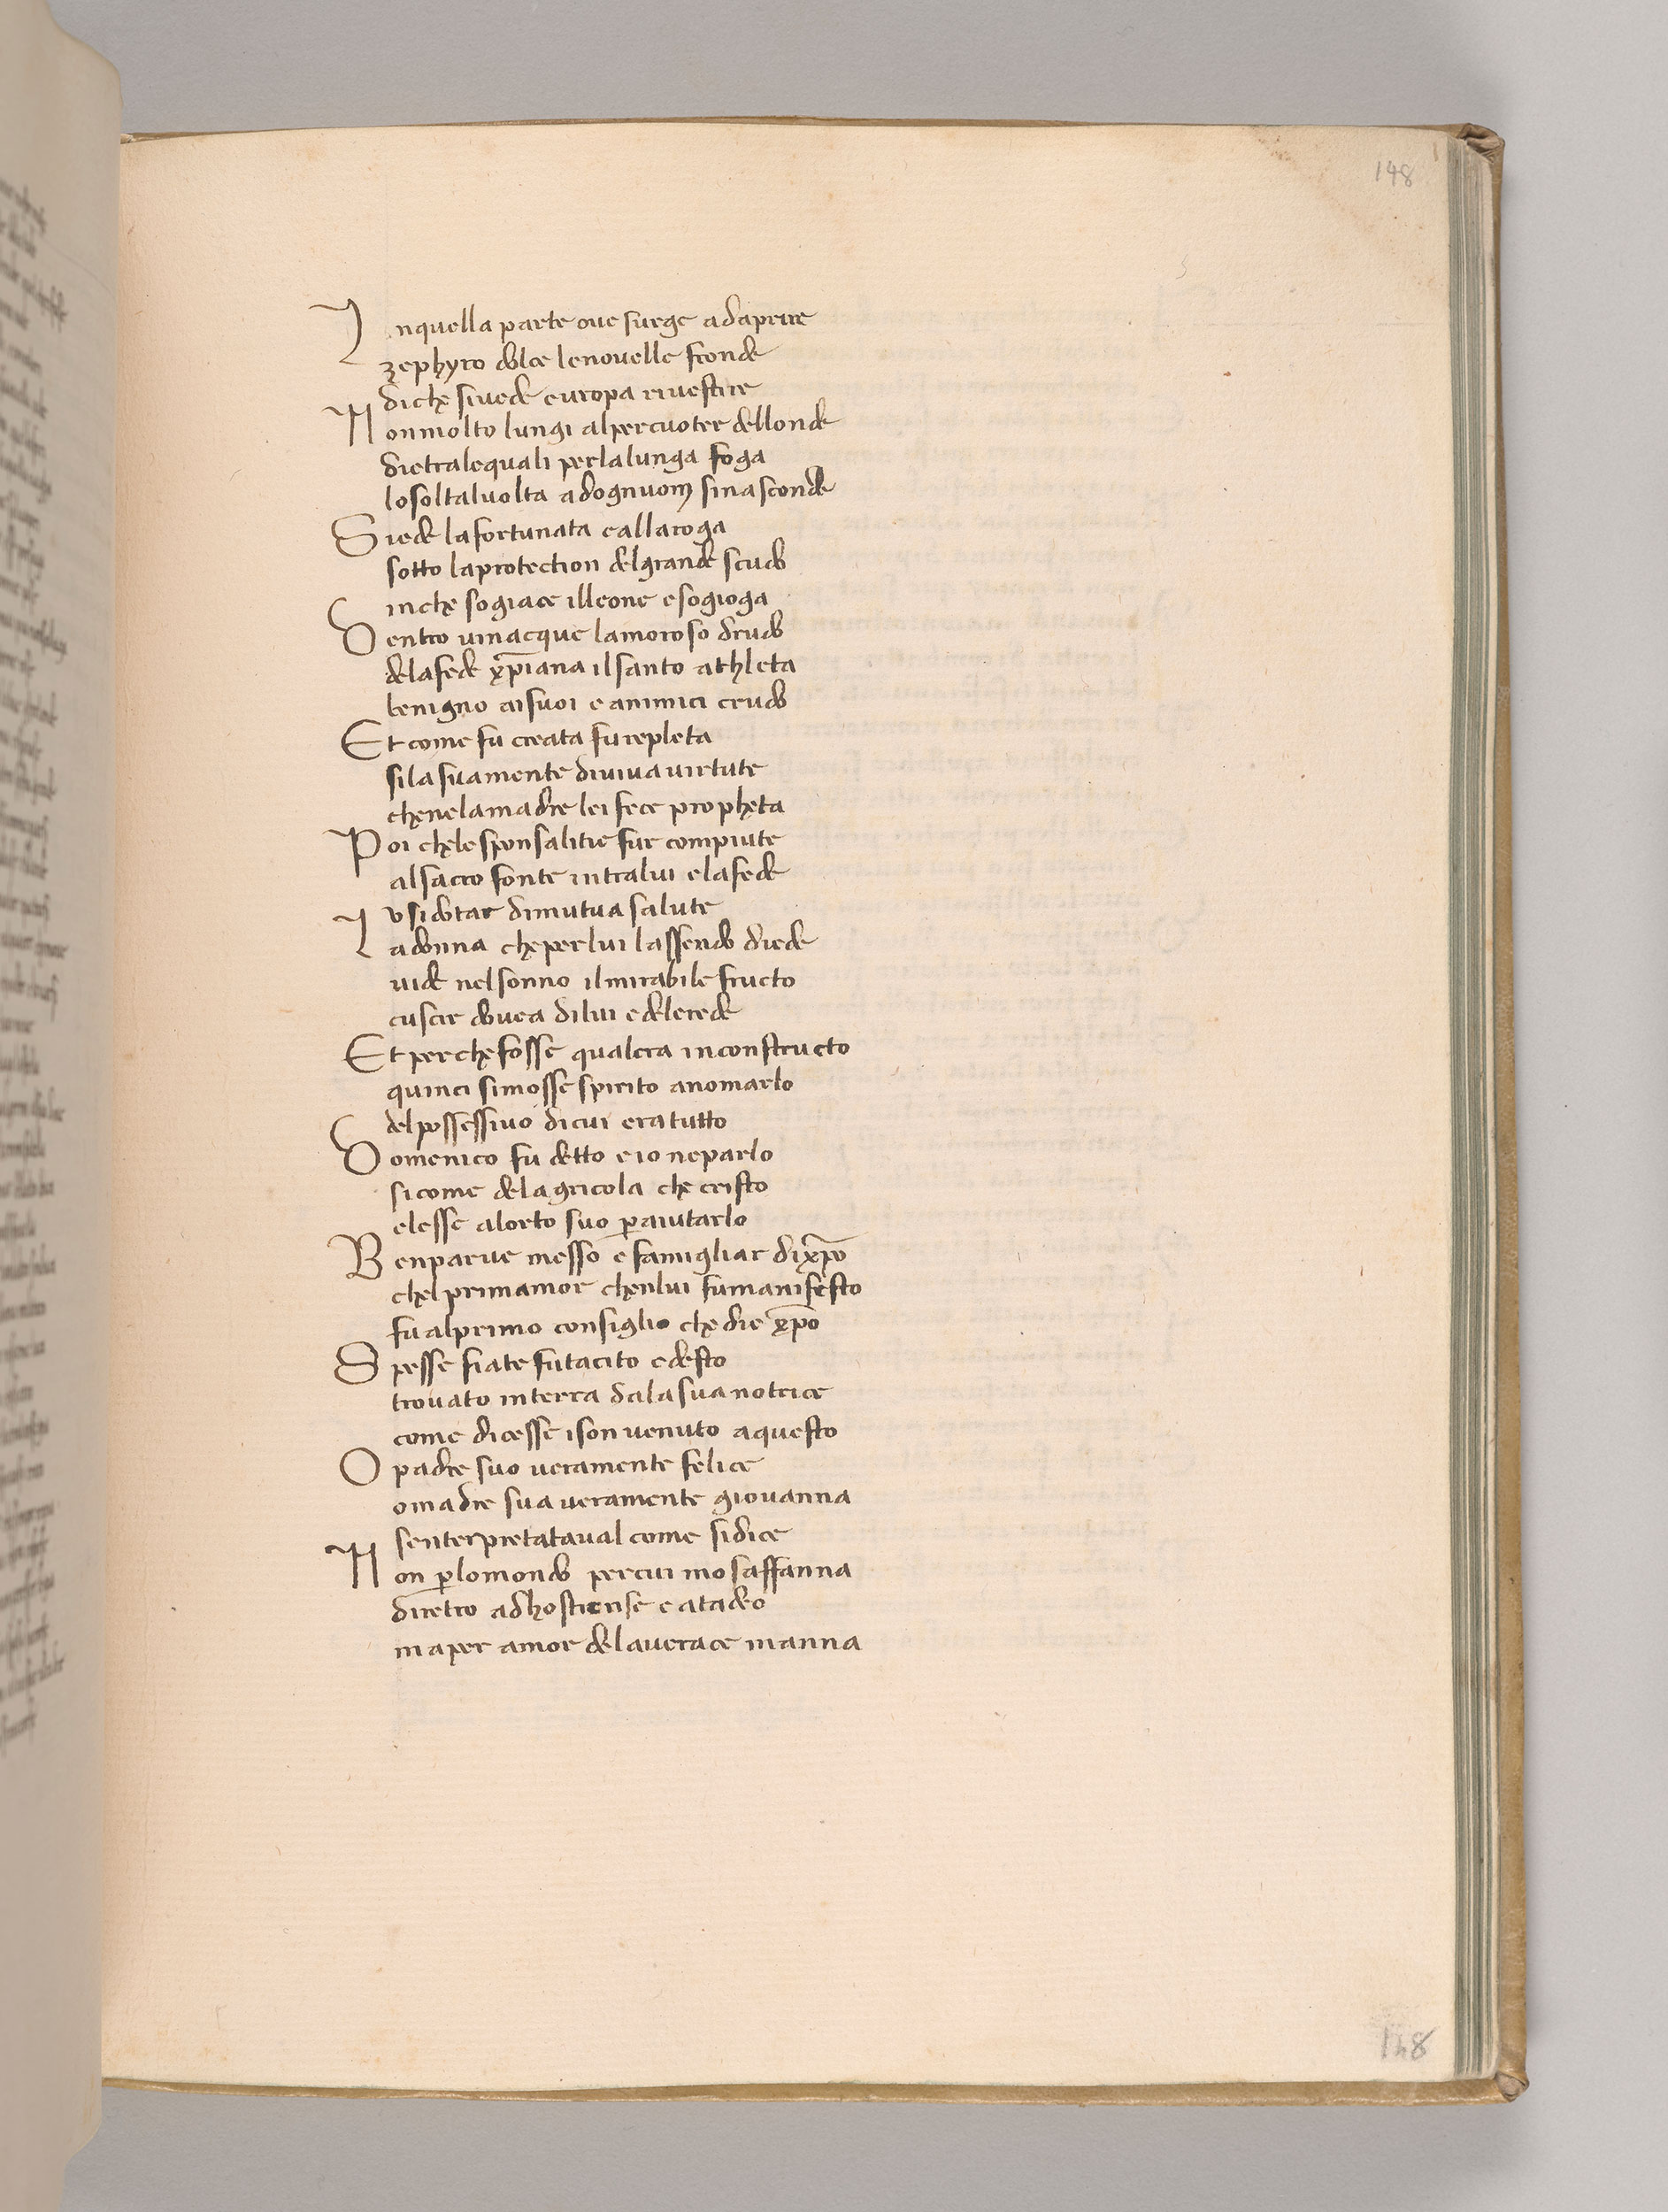 148
Inquella parte oue surge adaprire
zephyro dolce lenouelle fronde
diche siuede europa riuestire
Nonmolto lungi alpercuoter dellonde
dietralequali perlalunga foga
losoltaluolta adognuom sinasconde
Siede lafortunata callaroga
sotto laprotection delgrande scudo
inche sogiace illeone esogioga
Dentro uinacque lamoroso drudo
delafede xp̄iana ilsanto athleta
benigno aisuoi e animici crudo
Et come fu creata fu repleta
sila suamente diuiua uirtute
chenelamadre lei fece propheta
Poi chele sponsalitie fur compiute
alsacro fonte intralui elafede
v sidotar dimutua salute
La donna cheperlui lassenso diede
uide nelsonno ilmirabile fructo
cuscir douea dilui e delerede
Et perche fosse qualera inconstructo
quinci simosse spirito anomarlo
delpossessiuo dicui era tutto
Domenico fu detto e io neparlo
sicome delagricola che cristo
elesse alorto suo ꝑaiutarlo
Benparue messo e famigliar dixp̄o
chel primamor chenlui fumanifesto
fu alprimo consiglio che die xp̄o
Spesse fiate futacito edesto
trouato interra dalasua notrice
come dicesse ison venuto aquesto
O padre suo ueramente felice
omadre sua ueramente giouanna
senterpretataual come sidice
Non ꝑlomondo percui mo saffanna
diretro adhostiense e atadeo
maper amor delauerace manna
148